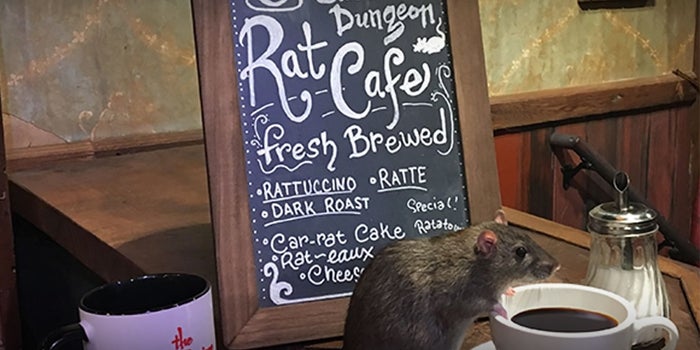 Dungeon
Rat
Cafe
fresh Brewed
• RATTUCCINO • RATTE
• DARK ROAST
Special!
• Car-rat Cake
• Rat-eaux
• Cheese
the